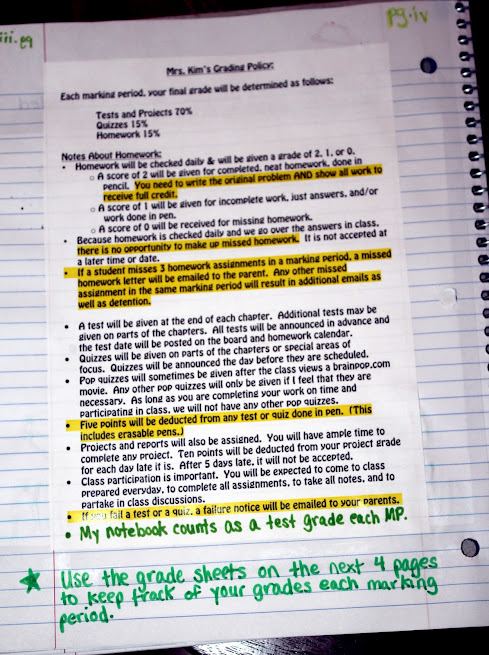 iii.pg
pg.iv
Mrs. Kim's Grading Policy:
Each marking period, your final grade will be determined as follows:
Tests and Projects 70%
Quizzes 15%
Homework 15%
Notes About Homework:
• Homework will be checked daily & will be given a grade of 2, 1, or 0.
o A score of 2 will be given for completed, neat homework, done in
pencil. You need to write the original problem AND show all work to
receive full credit.
o A score of 1 will be given for incomplete work, just answers, and/or
work done in pen.
o A score of 0 will be received for missing homework.
• Because homework is checked daily and we go over the answers in class,
there is no opportunity to make up missed homework. It is not accepted at
a later time or date.
• If a student misses 3 homework assignments in a marking period, a missed
homework letter will be emailed to the parent. Any other missed
assignment in the same marking period will result in additional emails as
well as detention.
• A test will be given at the end of each chapter. Additional tests may be
given on parts of the chapters. All tests will be announced in advance and
the test date will be posted on the board and homework calendar.
• Quizzes will be given on parts of the chapters or special areas of
focus. Quizzes will be announced the day before they are scheduled.
• Pop quizzes will sometimes be given after the class views a brainpop.com
movie. Any other pop quizzes will only be given if I feel that they are
necessary. As long as you are completing your work on time and
participating in class, we will not have any other pop quizzes.
• Five points will be deducted from any test or quiz done in pen. (This
includes erasable pens.)
• Projects and reports will also be assigned. You will have ample time to
complete any project. Ten points will be deducted from your project grade
for each day late it is. After 5 days late, it will not be accepted.
• Class participation is important. You will be expected to come to class
prepared everyday, to complete all assignments, to take all notes, and to
partake in class discussions.
• If you fail a test or a quiz, a failure notice will be emailed to your parents.
• My notebook counts as a test grade each MP.
★ Use the grade sheets on the next 4 pages
to keep track of your grades each marking
period.